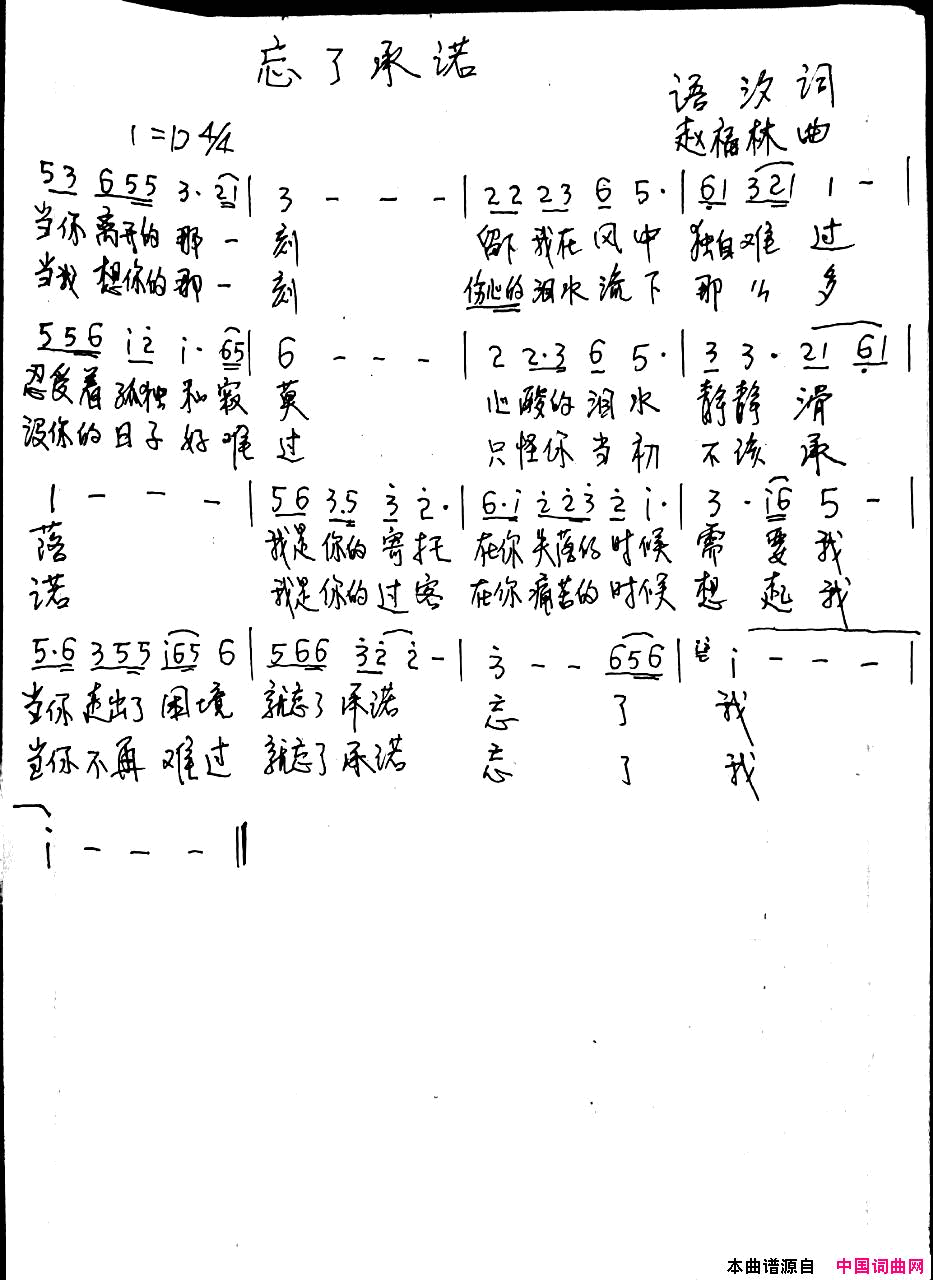 忘了承诺
语汐词
1=D 4/4
赵福林曲
53 655 3· 21 | 3 - - - | 22 23 6 5· | 61 321 1 - |
当你离开的那一刻 留下我在风中独自难过
当我想你的那一刻 伤心的泪水流下那么多
556 i2 i· 65 | 6 - - - | 2 2·3 6 5· | 3 3· 21 61 |
忍受着孤独和寂莫 心酸的泪水静静滑
没你的日子好难过 只怪你当初不该承
1 - - - | 56 3·5 3 2· | 6·i 223 2 i· | 3· i6 5 - |
落 我是你的寄托在你失落的时候需要我
诺 我是你的过客在你痛苦的时候想起我
5·6 355 i65 6 | 566 32 2 - | 3 - - 656 | i - - - |
当你走出了困境就忘了承诺忘了我
当你不再难过就忘了承诺忘了我
i - - - ‖
本曲谱源自 中国词曲网